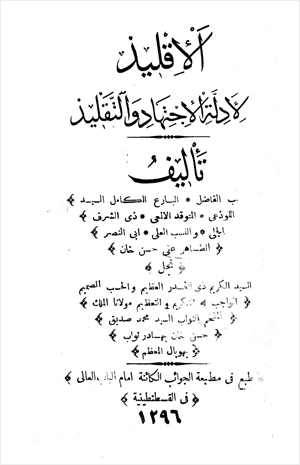 ألإقليذ
لأدلة الإجتهاد والتقليذ
تأليف
الفاضل * البارع الكامل السيد
اللوذعي * المتوقد الالمعي * ذى الشرف ﴾
الجلي * والنسب العلى * ابى النصر ﴾
﴿ الطاهر على حسن خان ﴾
﴿ نجل ﴾
السيد الكريم ذى القدر العظيم والحسب الصميم
الواجب له التكريم و التعظيم مولانا الملك ﴾
النواب السيد محمد صديق ﴾
﴿ حسن خان بهادر نواب ﴾
﴿ بهوپال المعظم ﴾
طبع فى مطبعة الجوائب الكائنة امام الباب العالى ﴾
﴿ فى القسطنطينية ﴾
١٢٩٦